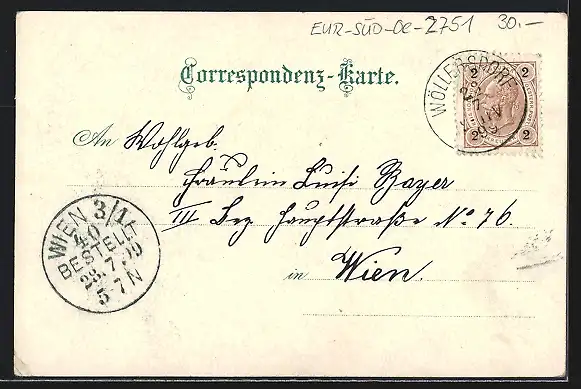 EUR-SÜD-OE-2751 30.-
Correspondenz-Karte.
WÖLLERSDORF
99
2 2
2 2
An Wohlgeb.
Fräulein Luisi Bayer
III Bez. Hauptstraße No 76.
in Wien.
WIEN 3/1
40
BESTELLT
23.7.99
5-7N